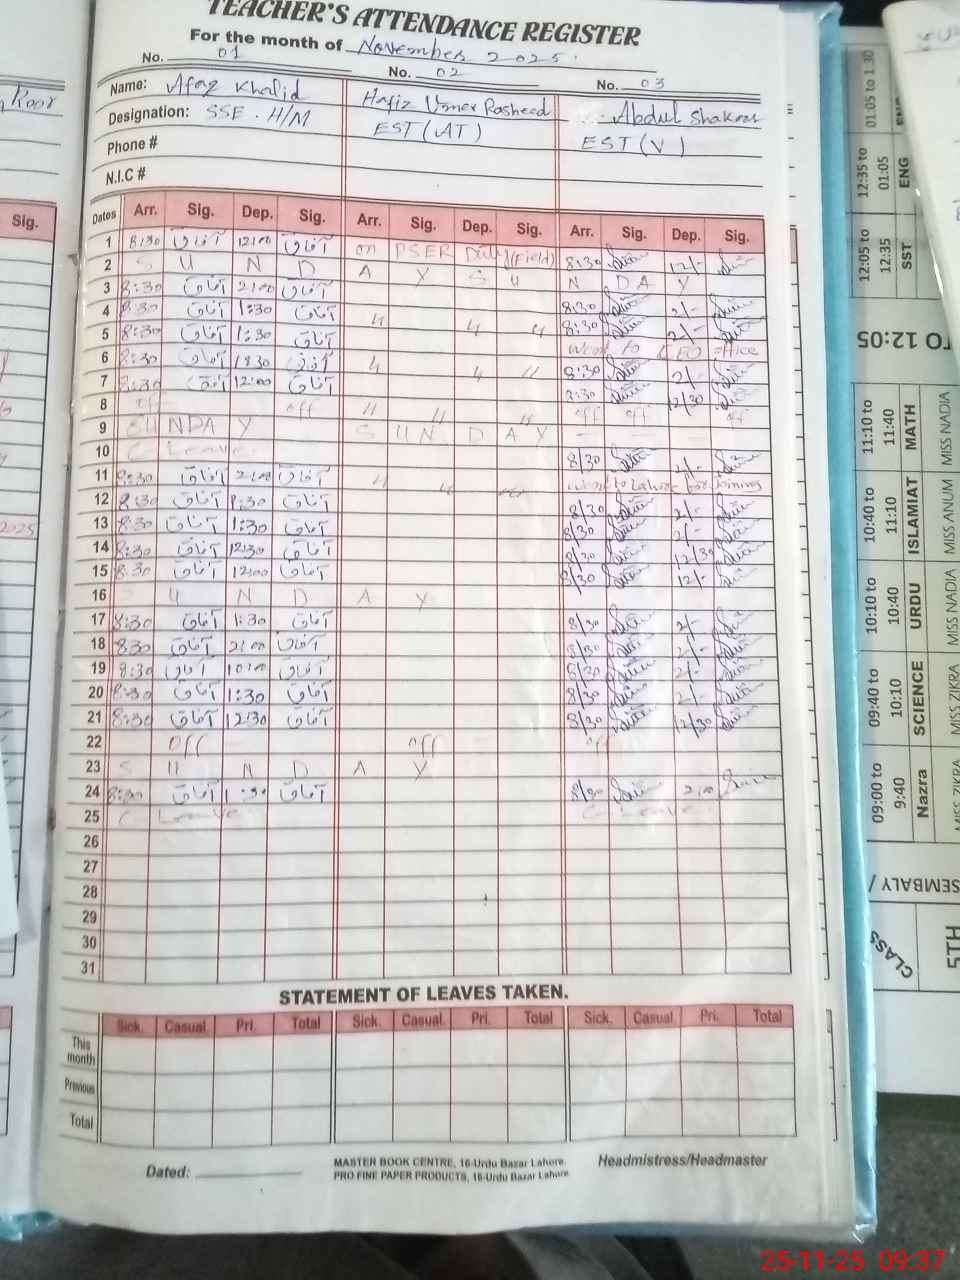 TEACHER'S ATTENDANCE REGISTER
For the month of November 2025.
No. 01 No. 02 No. 03
Name: Afaq Khalid Hafiz Umer Rasheed Abdul Shakoor
Designation: SSE. H/M EST (AT) EST (V)
Phone #
N.I.C #
Dates Arr. Sig. Dep. Sig. Arr. Sig. Dep. Sig. Arr. Sig. Dep. Sig.
1 8:30 آفاق 12:00 آفاق on PSER Duty (Field) 8:30 12/-
2 S U N D A Y S U N D A Y
3 8:30 آفاق 2:00 آفاق 8:30 2/-
4 8:30 آفاق 1:30 آفاق 〃 〃 〃 8:30 2/-
5 8:30 آفاق 1:30 آفاق went to CEO office
6 8:30 آفاق 1:30 آفاق 〃 〃 〃 8:30 2/-
7 8:30 آفاق 12:00 آفاق 8:30 12/30
8 off off 〃 〃 〃 off off off
9 SUNDAY S U N D A Y - - - -
10 C Leave 8/30 2/-
11 8:30 آفاق 2:00 آفاق 〃 〃 〃 went to Lahore for Joining
12 8:30 آفاق 1:30 آفاق 8/30 2/-
13 8:30 آفاق 1:30 آفاق 8/30 2/-
14 8:30 آفاق 12:30 آفاق 8/30 12/30
15 8:30 آفاق 12:00 آفاق 8/30 12/-
16 S U N D A Y
17 8:30 آفاق 1:30 آفاق 8/30 2/-
18 8:30 آفاق 2:00 آفاق 8/30 2/-
19 8:30 آفاق 10:00 آفاق 8/30 2/-
20 8:30 آفاق 1:30 آفاق 8/30 2/-
21 8:30 آفاق 12:30 آفاق 8/30 12/30
22 off off off
23 S U N D A Y
24 8:30 آفاق 1:30 آفاق 8/30 2:00
25 C Leave C Leave
26
27
28
29
30
31
STATEMENT OF LEAVES TAKEN.
Sick. Casual. Pri. Total Sick. Casual. Pri. Total Sick. Casual. Pri. Total
This month
Previous
Total
Dated:
MASTER BOOK CENTRE, 16-Urdu Bazar Lahore.
PRO FINE PAPER PRODUCTS, 16-Urdu Bazar Lahore.
Headmistress/Headmaster
Sig.
2025
01:05 to 1:30
12:35 to 01:05 ENG
12:05 to 12:35 SST
TO 12:05
11:10 to 11:40 MATH MISS NADIA
10:40 to 11:10 ISLAMIAT MISS ANUM
10:10 to 10:40 URDU MISS NADIA
09:40 to 10:10 SCIENCE MISS ZIKRA
09:00 to 9:40 Nazra MISS ZIKRA
SEMBALY /
CLASS
5TH
25-11-25 09:37